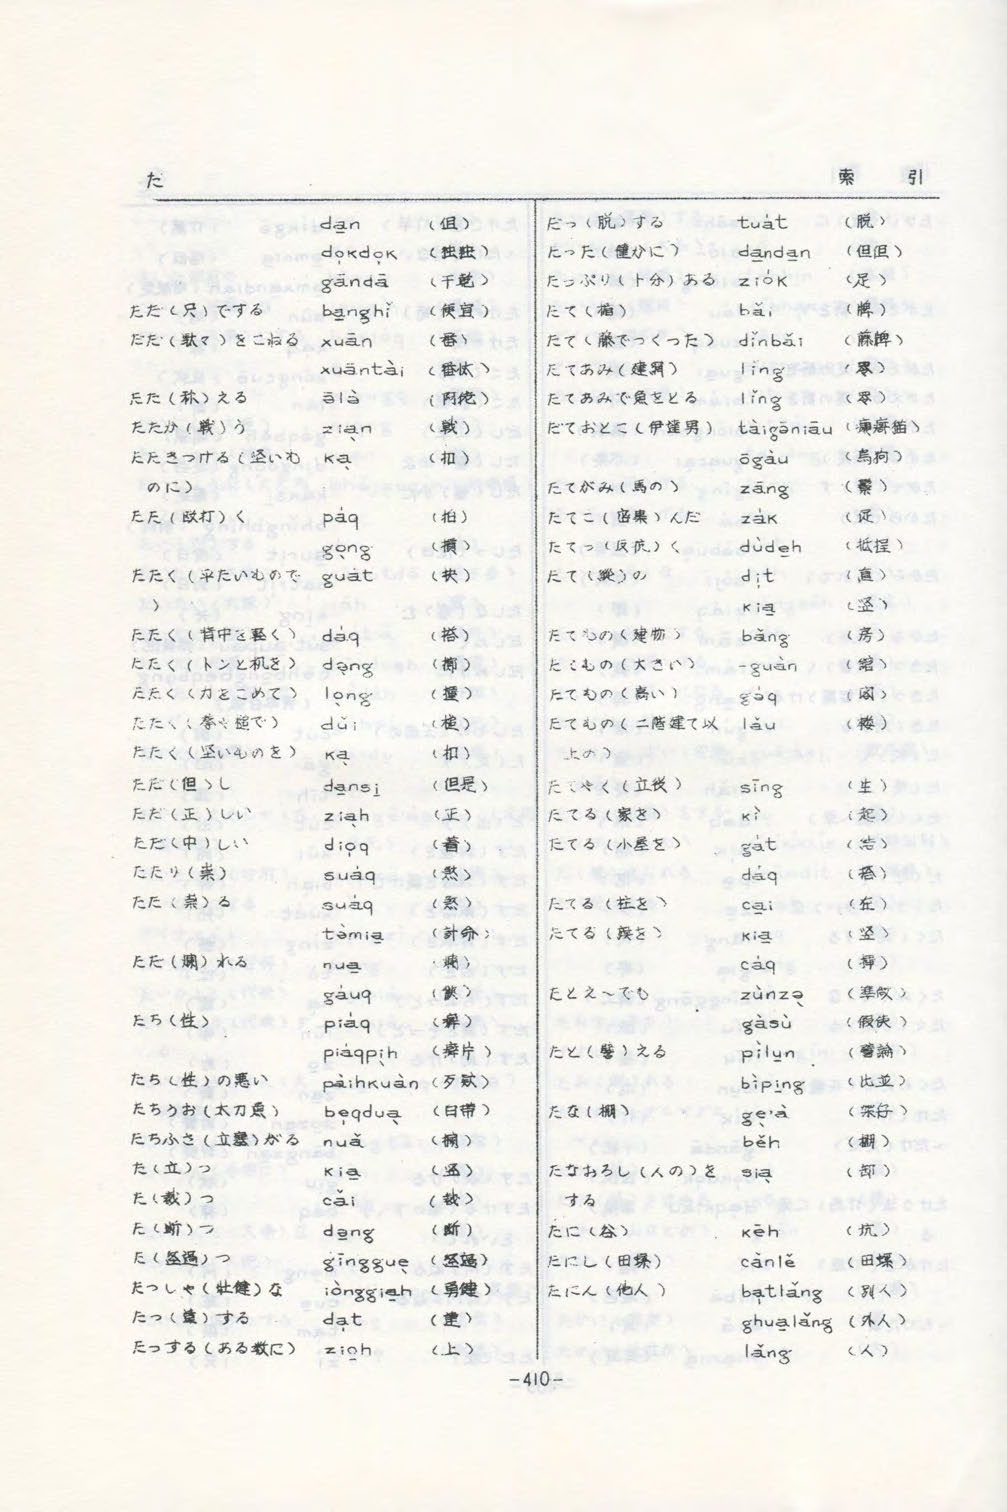 た
索 引
da̱n (但)
do̩kdo̩k (独独)
gāndā (干乾)
ただ(只)でする ba̱nghǐ (便宜)
だだ(駄々)をこねる xuān (番)
xuāntài (番怣)
たた(称)える ālà (阿佬)
たたか(戦)う zia̱n (戦)
たたきつける(堅いも ka̱ (扣)
のに)
たた(殴打)く páq (拍)
go̱ng (摃)
たたく(平たいもので guát (抉)
)
たたく(背中を軽く) dáq (搭)
たたく(トンと机を) de̱ng (擲)
たたく(力をこめて) lo̱ng (撞)
dǔi (槌)
たたく(堅いものを) ka̱ (扣)
ただ(但)し da̱nsi̱ (但是)
ただ(正)しい zia̱h (正)
ただ(中)しい dio̩q (著)
たたり(祟) suáq (煞)
たた(祟)る suáq (煞)
tòmia̱ (討命)
ただ(爛)れる nua̱ (爛)
gáuq
たち(性) piáq (癖)
piáqpi̱h (癖片)
たち(性)の悪い pàihkuàn (歹款)
たちうお(太刀魚) be̩qdua̱ (白帯)
たちふさ(立塞)がる nuǎ (攔)
た(立)つ kia̱ (竪)
た(裁)つ cǎi (裁)
た(断)つ de̱ng (断)
た(経過)つ gīnggue̱ (経過)
たっしゃ(壮健)な iònggia̱h (勇健)
たっ(達)する da̩t (達)
たっする(ある数に) zio̱h (上)
だっ(脱)する tuát (脱)
たった(僅かに) da̱nda̱n (但但)
たっぷり(十分)ある ziók (足)
たて(楯) bǎi (牌)
たて(藤でつくった) dǐnbǎi (藤牌)
たてあみ(建網) lǐng
たてあみで魚をとる lǐng
だておとこ(伊達男) tàigōniāu (癩𤺪猫)
ōgàu (烏狗)
たてがみ(馬の) zāng (鬃)
たてこ(密集)んだ zák
たてつ(反抗)く dùde̱h (抵捏)
たて(縦)の di̩t (直)
kia̱ (竪)
たてもの(建物) bǎng (房)
たてもの(大きい) -guàn (舘)
たてもの(高い) gáq (閣)
たてもの(二階建て以 lǎu (楼)
上の)
たてやく(立役) sīng (生)
たてる(家を) kì (起)
たてる(小屋を) gát
dáq (搭)
たてる(柱を) ca̱i (在)
たてる(旗を) kia̱ (竪)
cáq (揷)
たとえ～でも zùnzo̱ (準做)
gàsù (假使)
たと(譬)える pìlu̱n (譬論)
bìpi̱ng (比並)
たな(棚) ge̱'à (架仔)
běh (棚)
たなおろし(人の)を sia̱ (卸)
する
たに(谷) kēh (坑)
たにし(田螺) cǎnlě (田螺)
たにん(他人) ba̩tlǎng (別人)
ghua̱lǎng (外人)
lǎng (人)
-410-